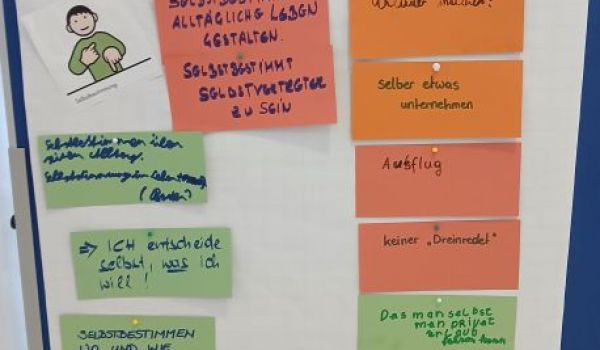 Selbstbestimmung
SELBSTBESTIMMT
ALLTÄGLICHE LEBEN
GESTALTEN.
SELBSTBESTIMMT
SELBSTVERTRETER
ZU SEIN
Selbstbestimmen über
Alltag.
Selbstbestimmung im Leben
⇒ ICH entscheide
selbst, was ich
will!
SELBSTBESTIMMEN
WO UND WIE
machen?
Selber etwas
unternehmen
Ausflug
keiner „Dreinredet"
Das man selbst
man privat
fahren kann